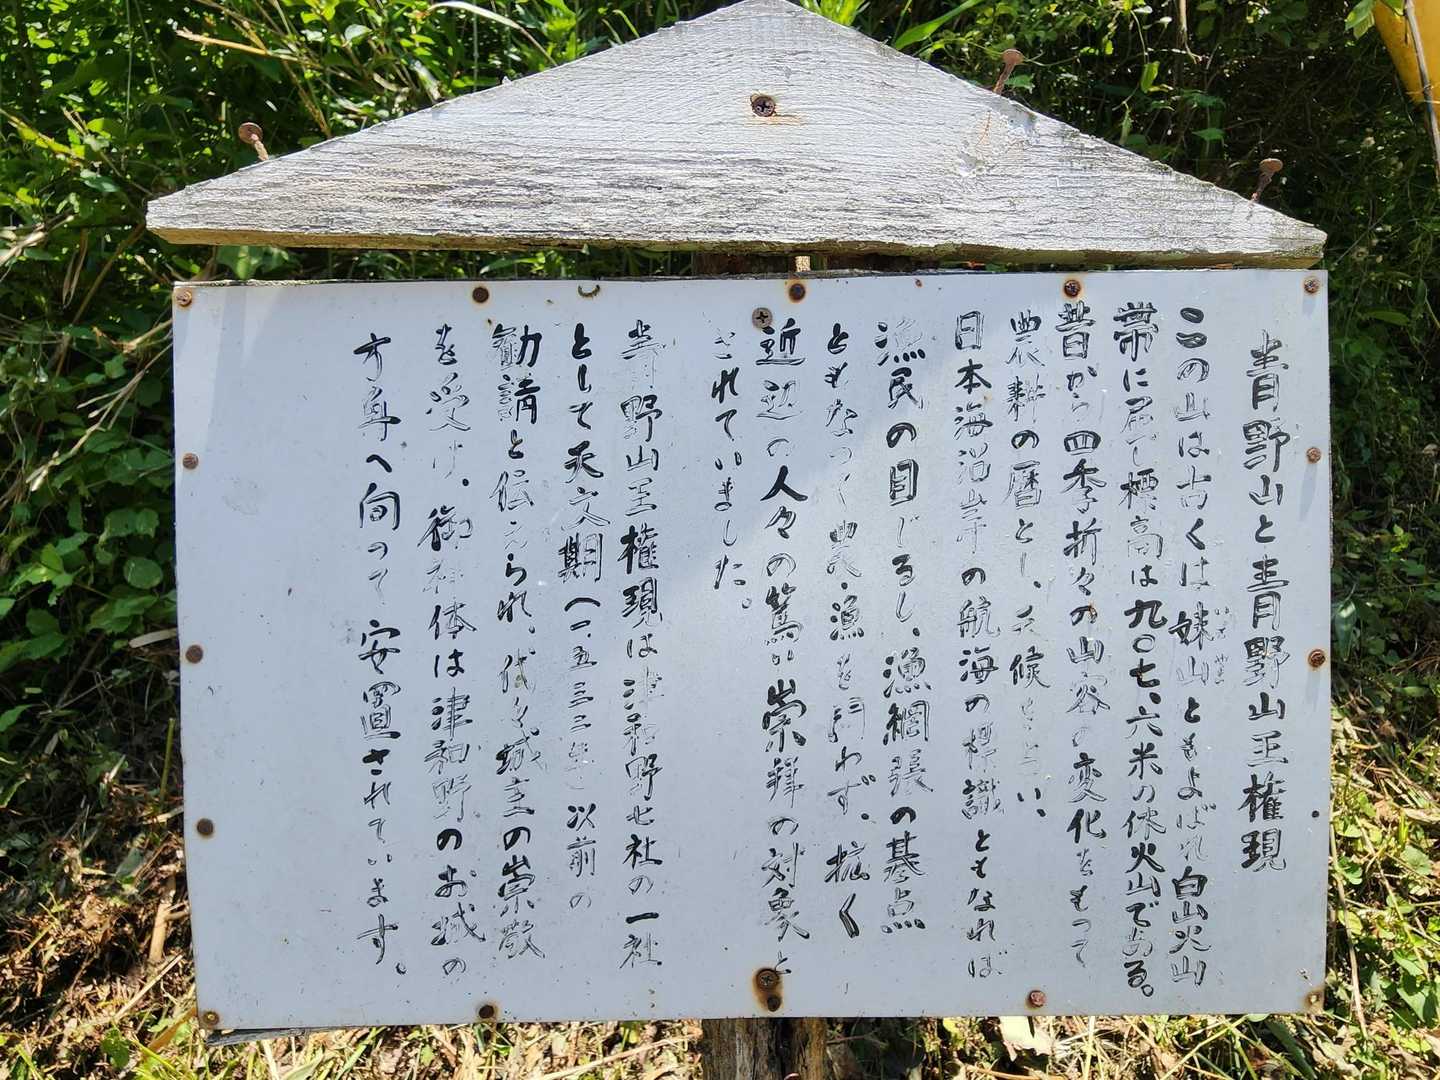 青野山と青野山王権現
この山は古くは妹山ともよばれ白山火山
帯に属し標高は九〇七、六米の休火山である。
昔から四季折々の山容の変化をもって
農耕の暦とし、天候をい、
日本海沿岸の航海の標識ともなれば
漁民の目じるし、漁網張の基点
ともなって農・漁を問わず、拡く
近辺の人々の篤い崇拝の対象と
されていました。
青野山王権現は津和野七社の一社
として天文期(一五三二年)以前の
勧請と伝えられ、代々城主の崇敬
を受け、御神体は津和野のお城の
す身へ向って安置されています。